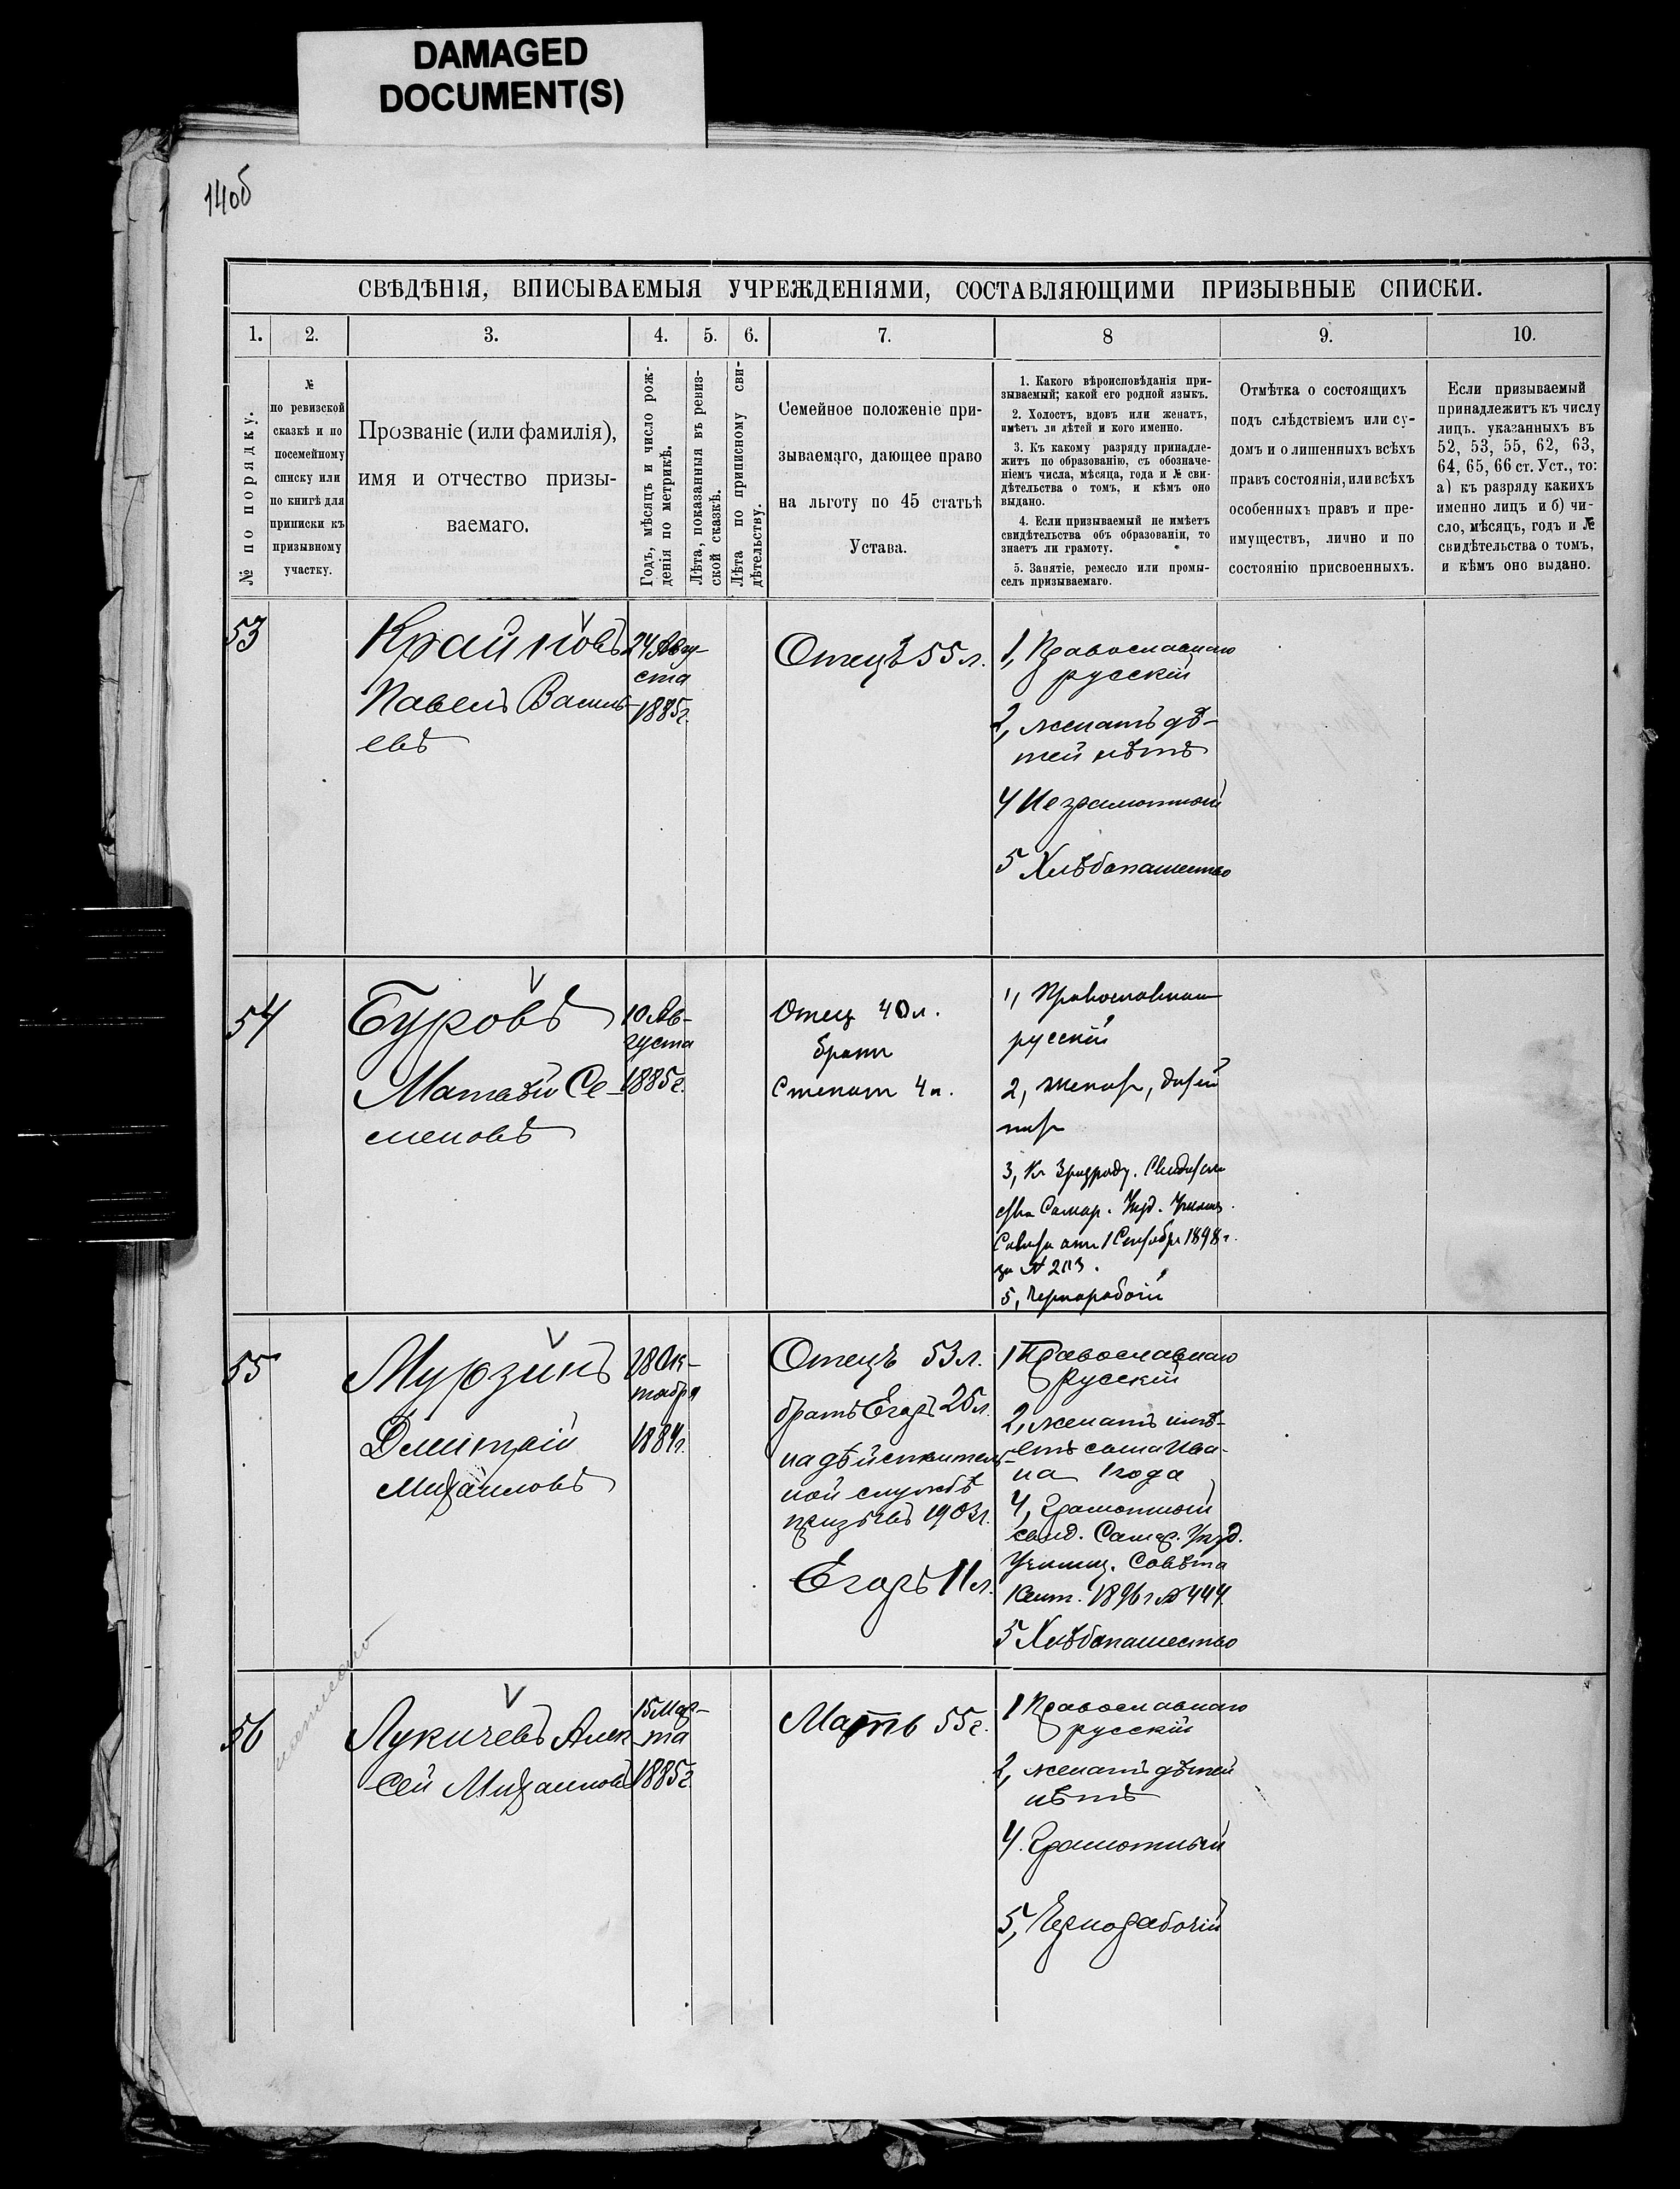 DAMAGED
DOCUMENT(S)
14об
СВѢДѢНІЯ, ВПИСЫВАЕМЫЯ УЧРЕЖДЕНІЯМИ, СОСТАВЛЯЮЩИМИ ПРИЗЫВНЫЕ СПИСКИ.
1. 2. 3. 4. 5. 6. 7. 8 9. 10.
№ по порядку.
№
по ревизской
сказкѣ и по
посемейному
списку или
по книгѣ для
приписки къ
призывному
участку.
Прозваніе (или фамилія),
имя и отчество призы-
ваемаго.
Годъ, мѣсяцъ и число рож-
денія по метрикѣ.
Лѣта, показанныя въ ревиз-
ской сказкѣ.
Лѣта по приписному сви-
дѣтельству.
Семейное положеніе при-
зываемаго, дающее право
на льготу по 45 статьѣ
Устава.
1. Какого вѣроисповѣданія при-
зываемый; какой его родной языкъ.
2. Холостъ, вдовъ или женатъ,
имѣетъ ли дѣтей и кого именно.
3. Къ какому разряду принадле-
житъ по образованію, съ обозначе-
ніемъ числа, мѣсяца, года и № сви-
дѣтельства о томъ, и кѣмъ оно
выдано.
4. Если призываемый не имѣетъ
свидѣтельства объ образованіи, то
знаетъ ли грамоту.
5. Занятіе, ремесло или промы-
селъ призываемаго.
Отмѣтка о состоящихъ
подъ слѣдствіемъ или су-
домъ и о лишенныхъ всѣхъ
правъ состоянія, или всѣхъ
особенныхъ правъ и пре-
имуществъ, лично и по
состоянію присвоенныхъ.
Если призываемый
принадлежитъ къ числу
лицъ, указанныхъ въ
52, 53, 55, 62, 63,
64, 65, 66 ст. Уст., то:
а) къ разряду какихъ
именно лицъ и б) чи-
сло, мѣсяцъ, годъ и №
свидѣтельства о томъ,
и кѣмъ оно выдано.
53
Крайновъ
Павелъ Василь-
евъ
24 Авгу-
ста
1885г.
Отецъ 55 л.
1, Православнаго
русскій
2, женатъ дѣ-
тей нѣтъ
4 Неграмотный
5 Хлѣбопашество
54
Буровъ
Матвѣй Се-
меновъ
10 Ав-
густа
1885г.
Отец 40 л.
брат
Степан 4 л.
1, Православнаго
русскій
2, женат, дѣтей
нѣт
3, Къ 3 разряду. Свидѣтель
ство Самар. Уѣзд. Училищ.
Совѣта отъ 1 Сентября 1898 г.
за №
5, Чернорабочій
55
Мурзинъ
Дмитрій
Михайловъ
28 Ок-
тября
1884г.
Отецъ 53 л.
братъ Егоръ 25 л.
на дѣйствитель-
ной службѣ
призывъ 1903г.
Егоръ 11 л.
1 Православнаго
русскій
2, женатъ имѣ-
етъ сына Ива-
на 1 года
4, Грамотный
свид. Самар. Уѣзд.
Училищ. Совѣта
1 Сент. 1896 г № 444
5 Хлѣбопашество
56
Лукичевъ Алек-
сей Михайловъ
15 Мар-
та
1885г
Мать 55 г.
1 Православнаго
русскій
2, женатъ дѣтей
нѣтъ
4. Грамотный
5, Чернорабочій